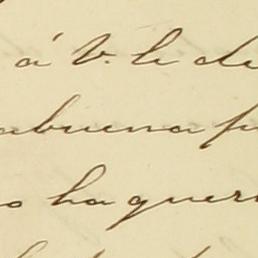 á V. le de
abuena p
o ha quer